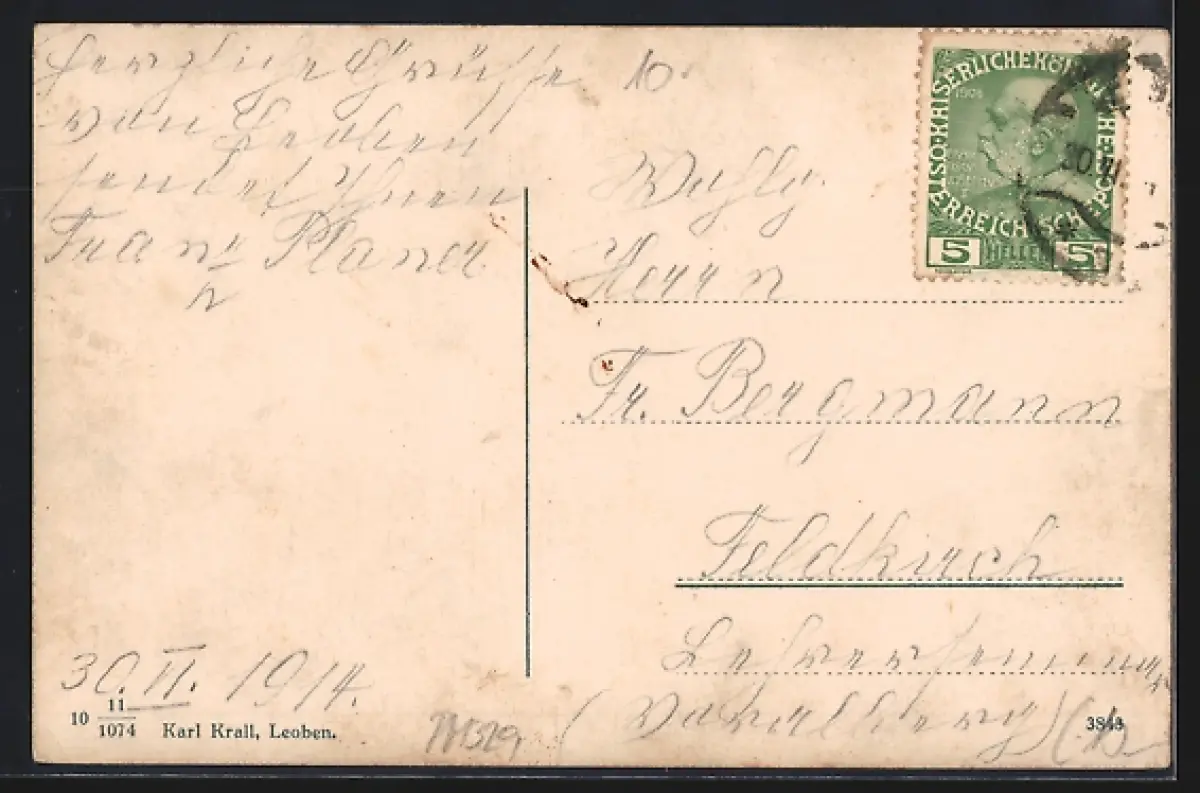 Herzliche Grüsse
von Leoben
sendet Ihnen
Franz Planer
10
KAISERLICHE KÖNIGL
ÖSTERREICHISCHE POST
1908
5 HELLER 5
30.VI
Wohlg.
Herrn
Fr. Bergmann
Feldkirch
Lehrerseminar
(Vorarlberg)
30. VI. 1914.
10 11/1074 Karl Krall, Leoben.
3843